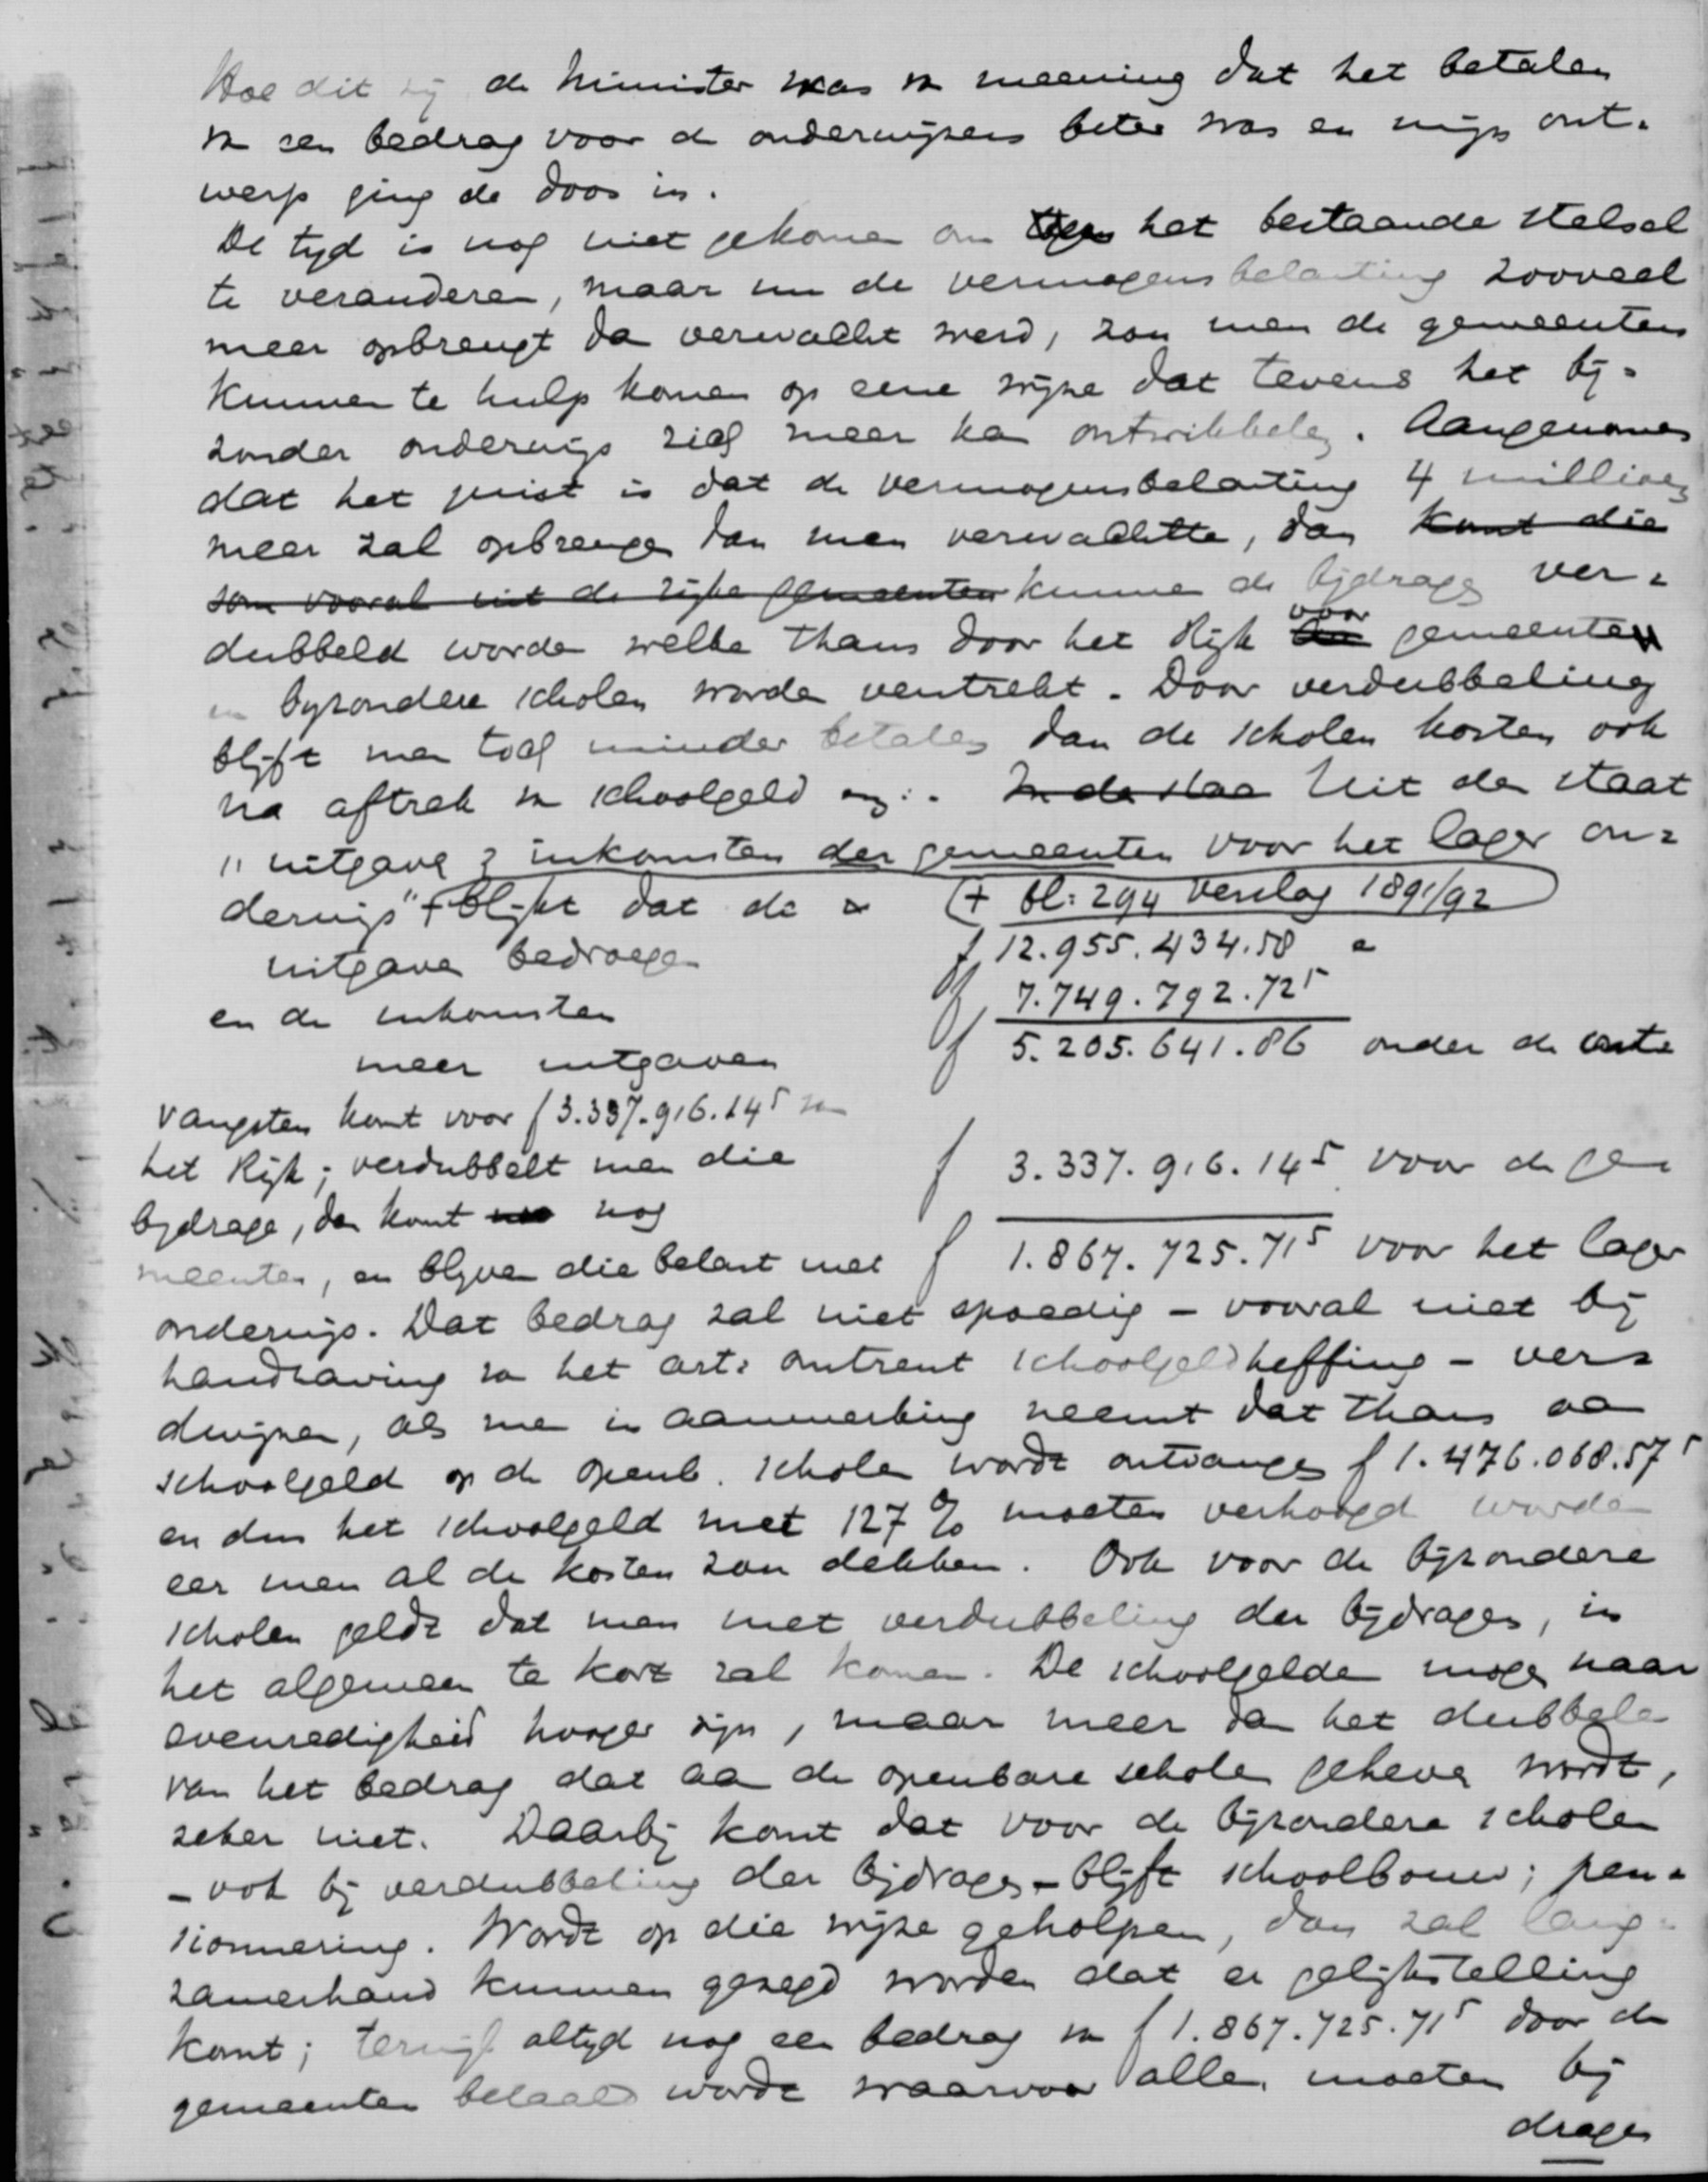 Hoe dit zij de Minister was van meening dat het betalen
van een bedrag voor de onderwijzers beter was en mijn ont=
werp ging de doos in.
De tijd is nog niet gekomen om het bestaande stelsel
te veranderen, maar nu de vermogensbelasting zooveel
meer opbrengt dan verwacht werd, zou men de gemeenten
kunnen te hulp komen op eene wijze dat tevens het bij=
zonder onderwijs zich meer kan ontwikkelen. Aangenomen
dat het juist is dat de vermogensbelasting 4 millioen
meer zal opbrengen dan men verwachtte, dan komt die
som vooral uit de rijke gemeenten kunnen de bijdragen ver=
dubbeld worden welke thans door het Rijk voor gemeenten
en bijzondere scholen worden verstrekt. Door verdubbeling
blijft men toch minder betalen dan de scholen kosten ook
na aftrek van schoolgeld enz:. In de staa Uit den staat
"uitgaven & inkomsten der gemeenten voor het lager on=
derwijs" + blijkt dat de (+ bl: 294 verslag 1891/92
uitgaven bedroegen f 12.955.434.58
en de inkomsten f 7.749.792.72⁵
meer uitgaven f 5.205.641.86 onder de ont=
vangsten komt voor f 3.337.916.14⁵ van
het Rijk; verdubbelt men die
bijdrage, dan komt nog f 3.337.916.14⁵ voor de ge=
meenten, en blijven die belast met f 1.867.725.71⁵ voor het lager
onderwijs. Dat bedrag zal niet spoedig – vooral niet bij
handhaving van het art: omtrent schoolgeldheffing – ver=
dwijnen, als men in aanmerking neemt dat thans aan
schoolgeld op de openb. scholen wordt ontvangen f 1.476.068.57⁵
en dus het schoolgeld met 127 % moeten verhoogd worden
eer men al de kosten zou dekken. Ook voor de bijzondere
scholen geldt dat men met verdubbeling der bijdragen, in
het algemeen te kort zal komen. De schoolgelden mogen naar
evenredigheid hooger zijn, maar meer dan het dubbele
van het bedrag dat aan de openbare scholen geheven wordt,
zeker niet. Daarbij komt dat voor de bijzondere scholen
– ook bij verdubbeling der bijdragen – blijft schoolbouw; pen=
sionnering. Wordt op die wijze geholpen, dan zal lang=
zamerhand kunnen gezegd worden dat er gelijkstelling
komt; terwijl altijd nog een bedrag van f 1.867.725.71⁵ door de
gemeenten betaald wordt waarvoor allen moeten bij
dragen